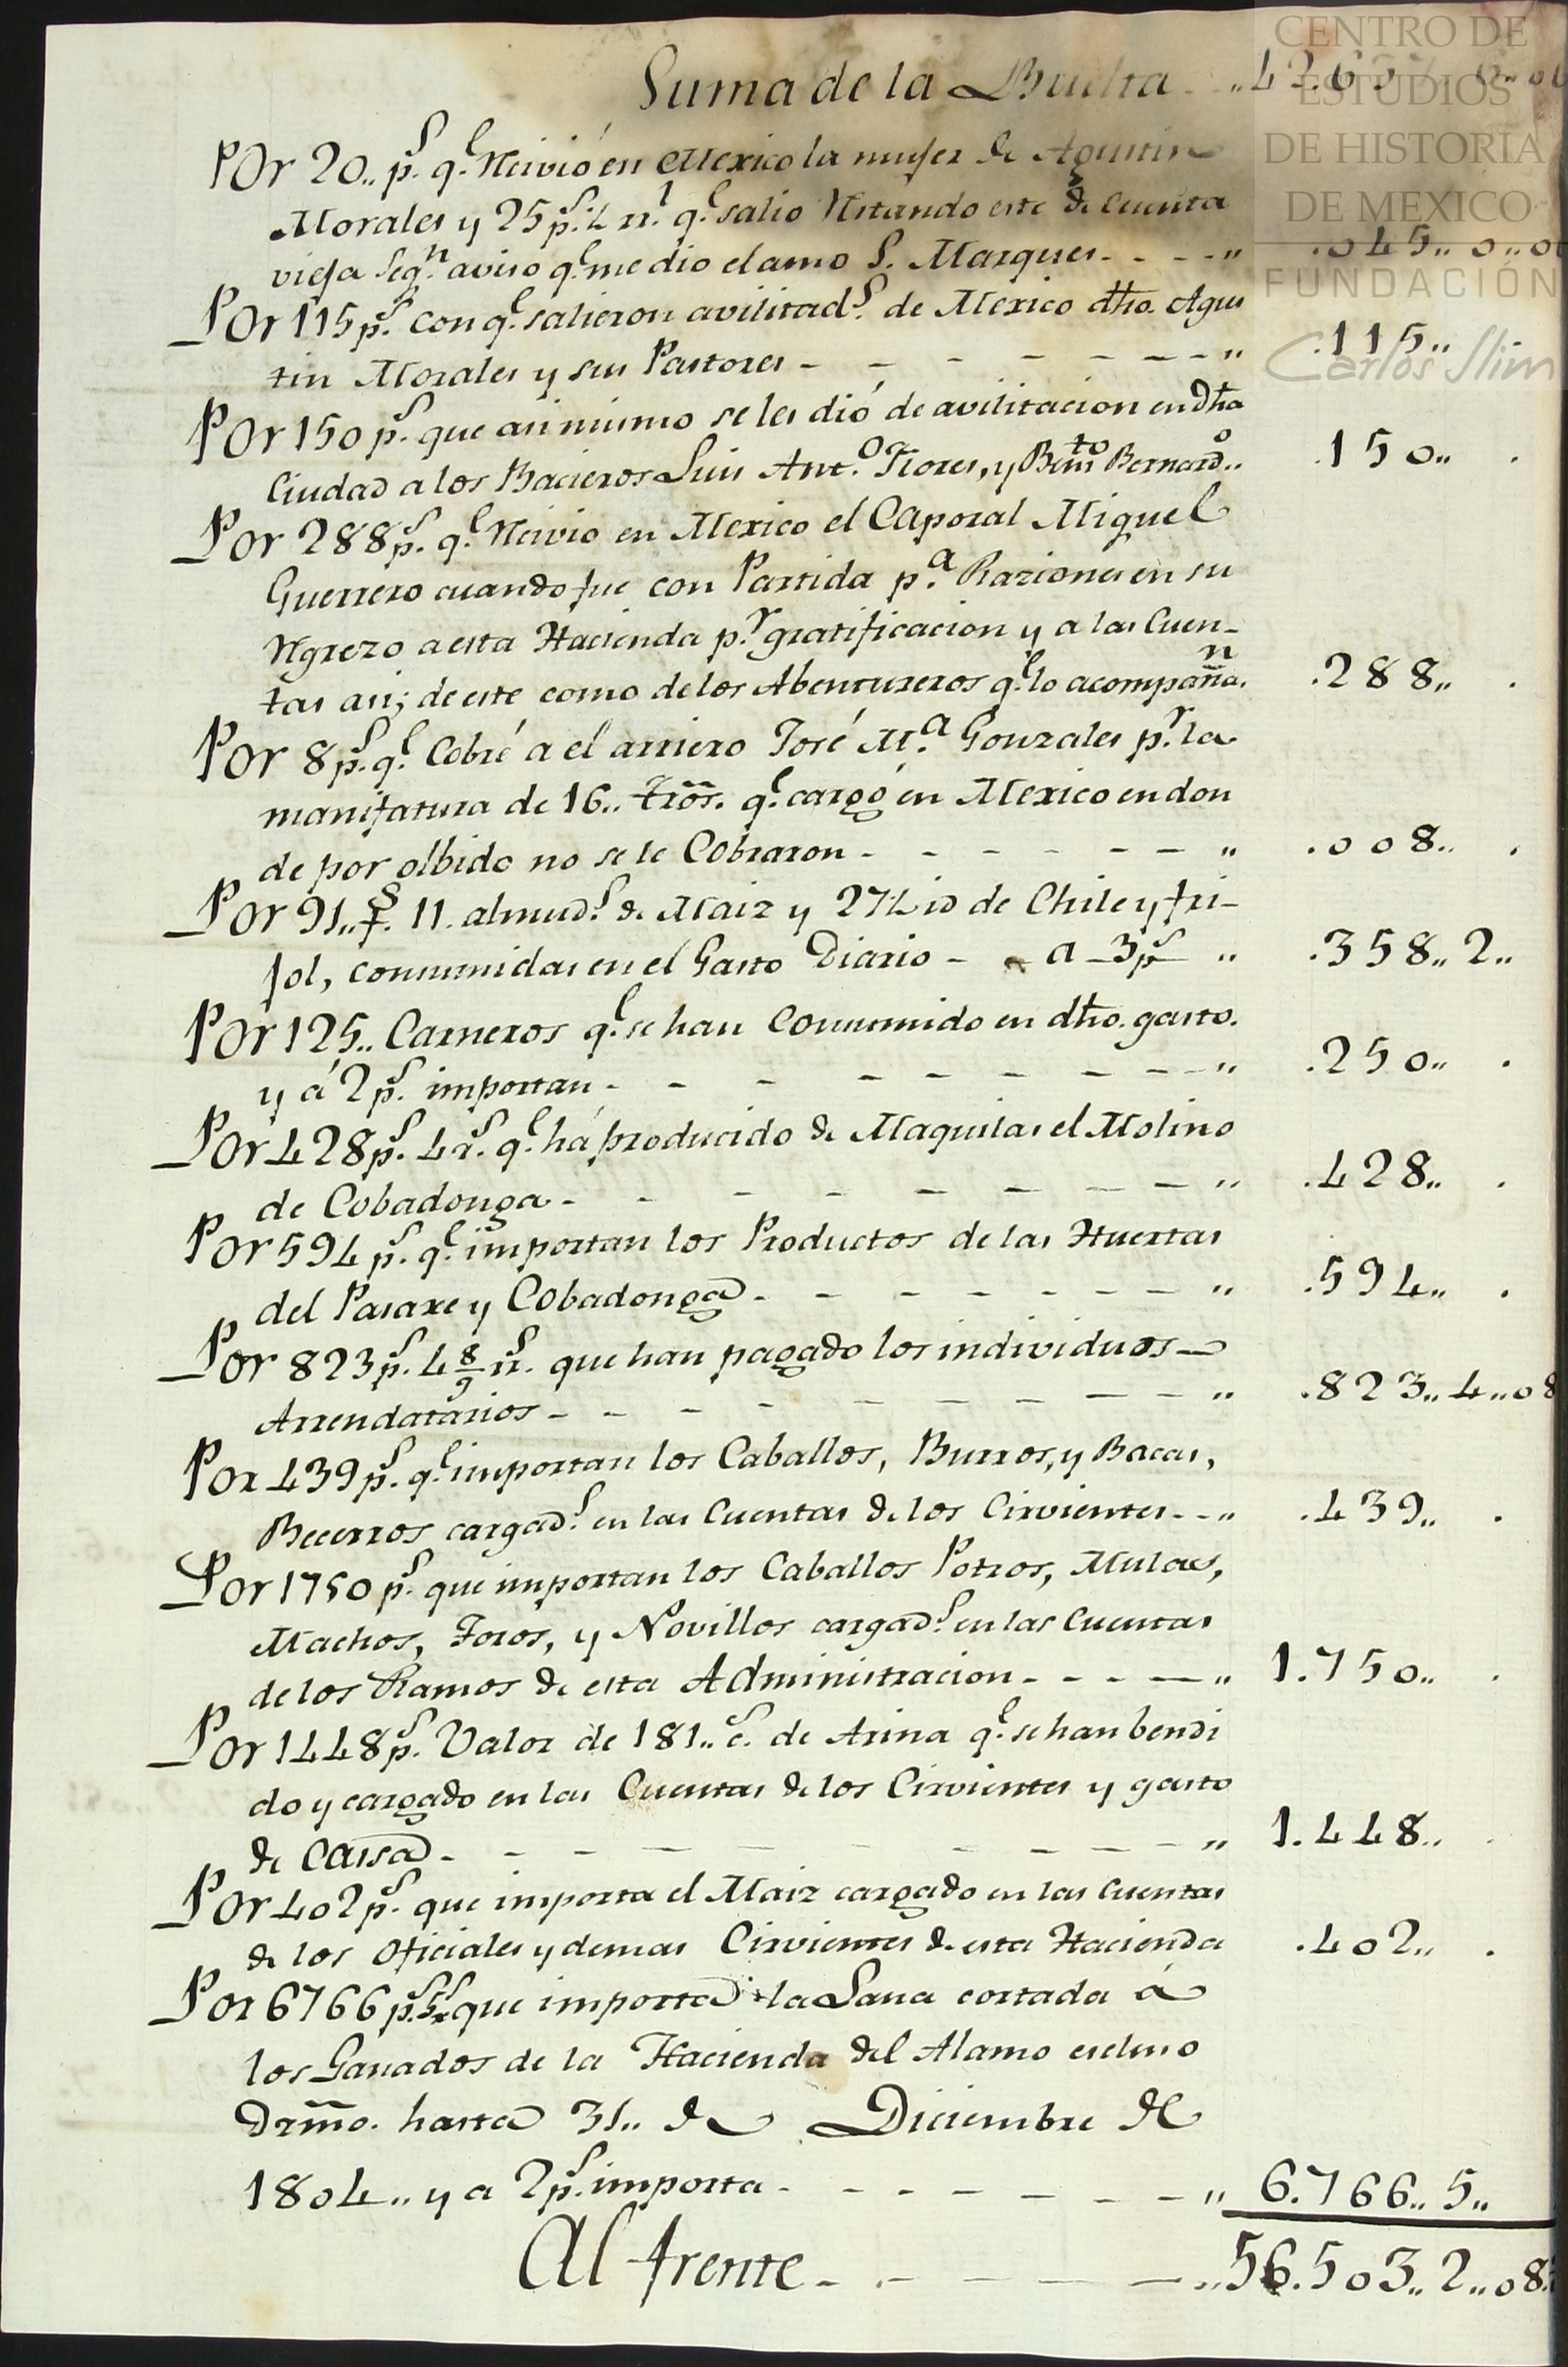 CENTRO DE
ESTUDIOS
DE HISTORIA
DE MEXICO
FUNDACIÓN
Carlos Slim
Suma de la Buelta
Por 20,, p.s q.e Recivió en Mexico la muger de Agustin
Morales y 25 p.s 4 r.l q.e salio Restando este de cuenta
vieja seg.n aviso q.e me dio el amo S. Marques - - - - ,, .045,, 0,, 0
Por 115 p.s con q.e salieron avilitad.s de Mexico dho. Agus
tin Morales y sus Pastores - - - - - - - - ,, .115,,
Por 150 p.s que asi mismo se les dió de avilitacion en Dha
Ciudad a los Bacieros Luis Ant.o Flores, y Ben.to Bernard.o ,, .150,, .
Por 288 p.s q.e Recivio en Mexico el Caporal Miguel
Guerrero cuando fue con Partida p.a Raziones en su
Regrezo a esta Hacienda p.r gratificacion y a las Cuen-
tas asi; de este como de los Abentureros q.e lo acompañan. .288,, .
Por 8 p.s q.e Cobré a el arriero José M.a Gonzales p.r la
manifatura de 16,, trõs. q.e cargó en Mexico en don
de por olbido no se le Cobraron - - - - - - ,, .008,, .
Por 91,, f.s 11. almud.s de Maiz y 27 4 id de Chile y fri-
jol, consumidas en el Gasto Diario - - a 3 p.s ,, .358,, 2,,
Por 125,, Carneros q.e se han Consumido en dho. gasto.
y á 2 p.s importan - - - - - - - - ,, .250,, .
Por 428 p.s 4 r.s q.e há producido de Maquilas el Molino
de Cobadonga - - - - - - - - ,, .428,, .
Por 594 p.s q.e importan los Productos de las Huertas
del Pasaxe y Cobadonga - - - - - - - ,, .594,, .
Por 823 p.s 4 8/9 r.s que han pagado los individuos
Arrendatarios - - - - - - - - ,, .823,, 4,, 08
Por 439 p.s q.e importan los Caballos, Burros, y Bacas,
Becerros cargad.s en las Cuentas de los Cirvientes - - ,, .439,, .
Por 1750 p.s que importan los Caballos Potros, Mulas,
Machos, Toros, y Novillos cargad.s en las Cuentas
de los Ramos de esta Administracion - - - - ,, 1.750,, .
Por 1448 p.s Valor de 181,, c.s de Arina q.e se han bendi
do y cargado en las Cuentas de los Cirvientes y gasto
de Cassa - - - - - - - - ,, 1.448,,
Por 402 p.s que importa el Maiz cargado en las Cuentas
de los Oficiales y demas Cirvientes de esta Hacienda .402,, .
Por 6766 p.s 5 r.s que importa la Lana cortada á
los Ganados de la Hacienda del Alamo esclu.o
Drmo. hasta 31,, de Diciembre de
1804,, y a 2 p.s importa - - - - - - - ,, 6.766,, 5,,
Al frente - - - - - ,, 56.503,, 2,, 08